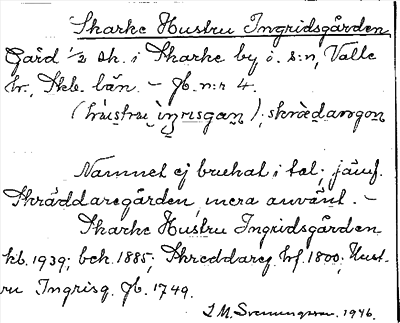 Skarke Hustru Ingridsgården
Gård 1/2 sk. i Skarke by o. s:n, Valle
hr., Skb. län. – Jb. n:r 4.
skrædargon
Namnet ej brukat i tal; jämf.
Skräddaregården, mera använt. –
Skarke Hustru Ingridsgården
kb. 1939; bek. 1885; Skreddareg. hf. 1800; Hust-
ru Ingrisg. Jb. 1749.
1946.